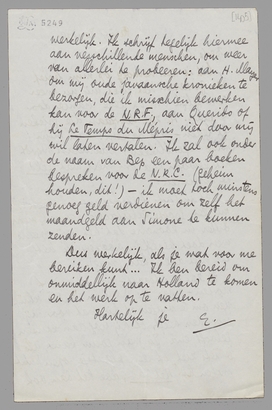 5249
werkelijk. Ik schrijf tegelijk hiermee
aan verschillende menschen, om weer
van allerlei te probeeren: aan H.
om mij oude javaansche kronieken te
bezorgen, die ik misschien bewerken
kan voor de N.R.F., aan Querido of
hij Le Temps du Mépris niet door mij
wil laten vertalen. Ik zal ook onder
de naam van Bep een paar boeken
bespreken voor De N.R.C. (geheim
houden, dit!) – ik moet toch minstens
genoeg geld verdienen om zelf het
maandgeld aan Simone te kunnen
zenden.
Dus werkelijk, als je wat voor me
bereiken kunt... Ik ben bereid om
onmiddellijk naar Holland te komen
en het werk op te vatten.
Hartelijk je
E.